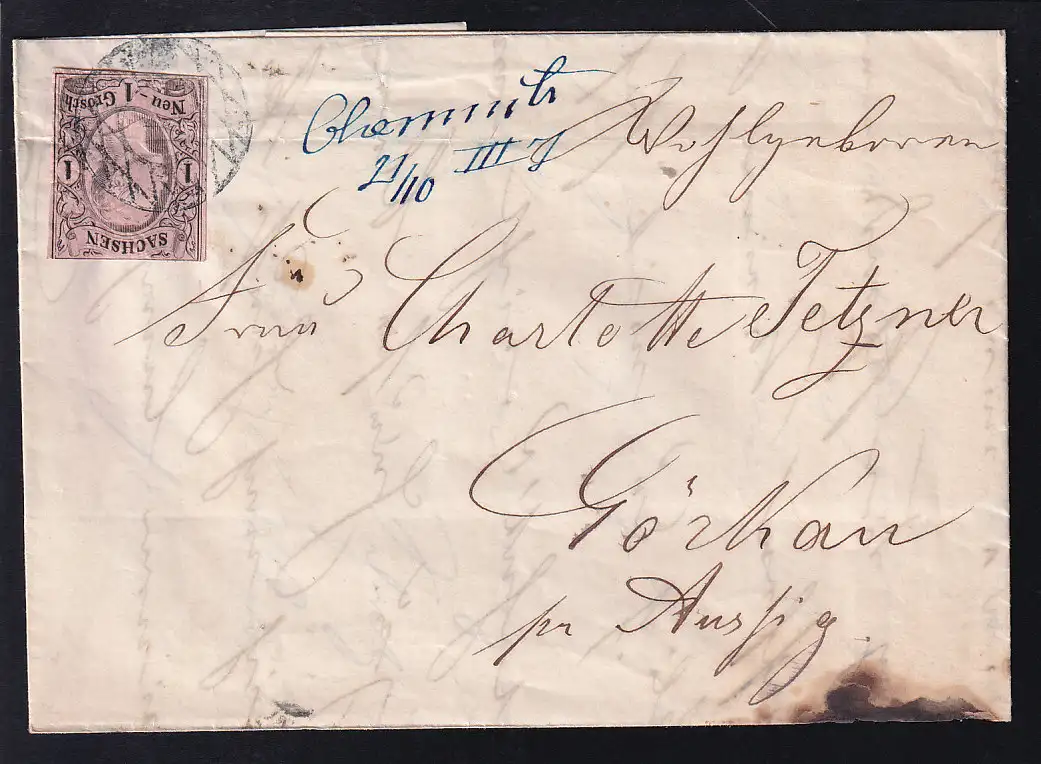 Neu - 1 Grosch
1 1
SACHSEN
Chemnitz
21/10 III
Wohlgeboren
Frau Charlotte Tetzner
Görkau
pr Aussig